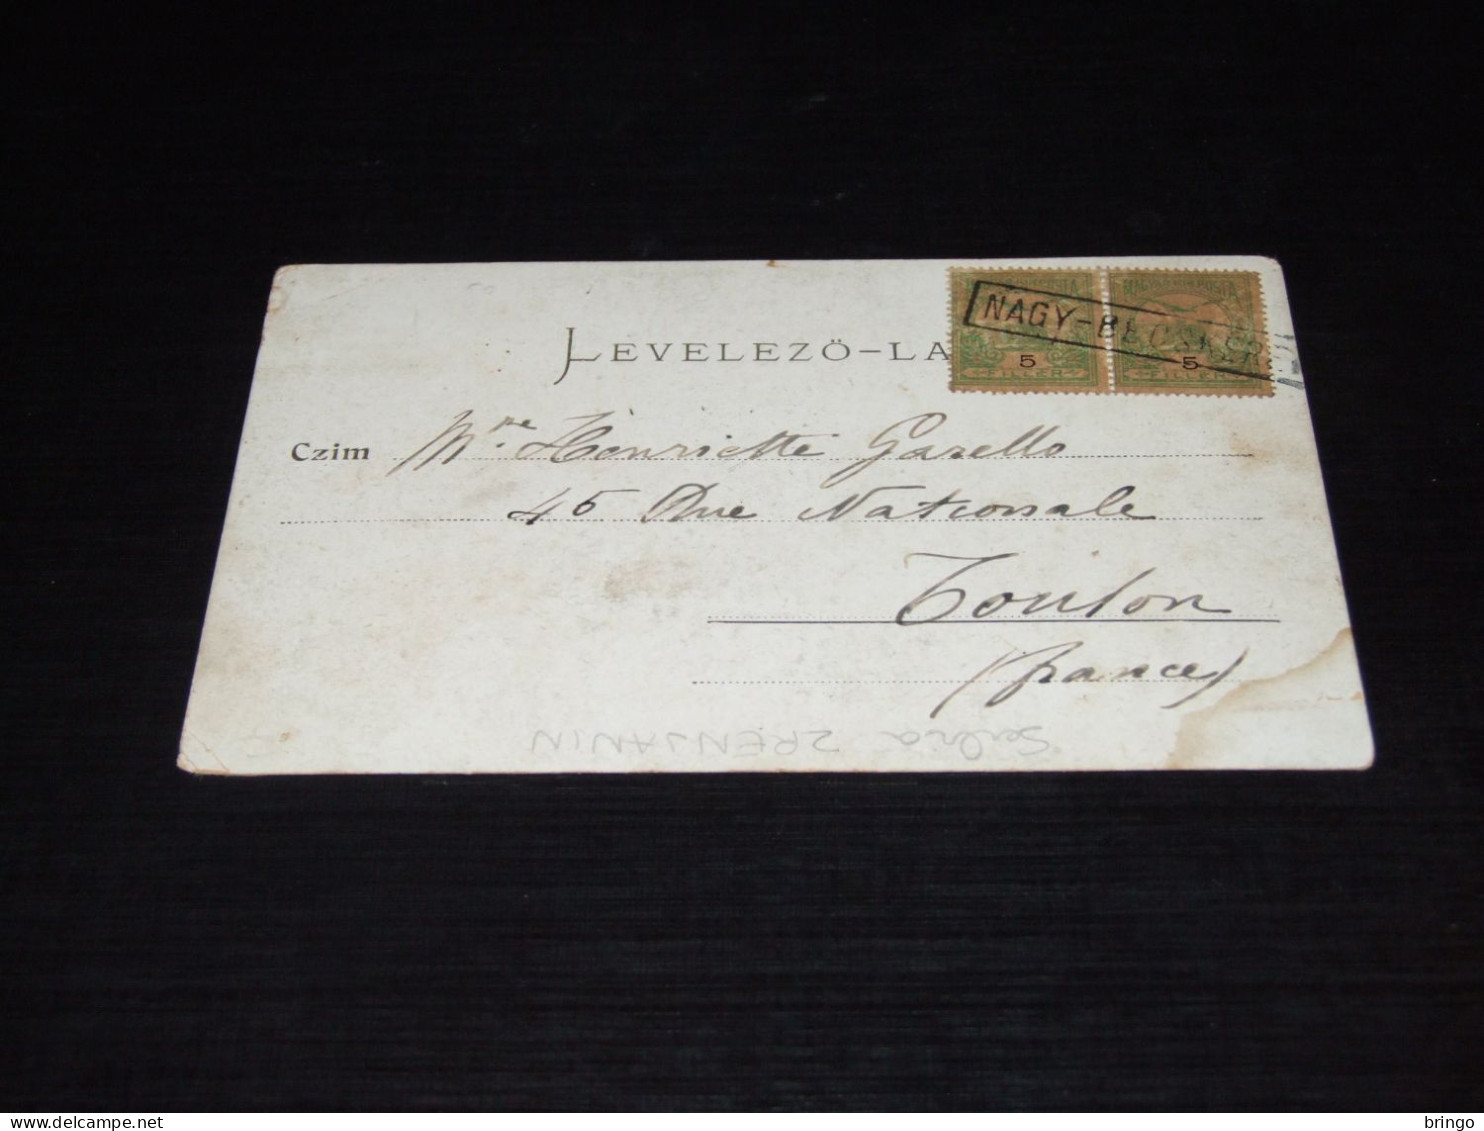 LEVELEZŐ-LA
MAGYAR KIR. POSTA
MAGYAR KIR. POSTA
NAGY-BECSKER
5
5
FILLÉR
FILLÉR
Czim Mme. Henriette Garello
45 Rue Nationale
Toulon
(france)
Serbia ZRENJANIN
delcampe.net
bringo